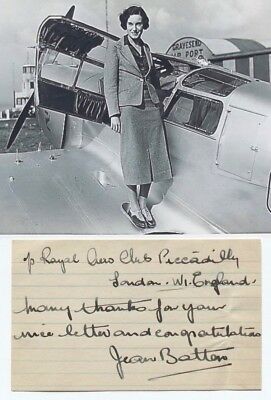 GRAVESEND
AIR PORT
c/o Royal Aero Club Piccadilly
London. W1. England.
Many thanks for your
nice letter and congratulations
Jean Batten